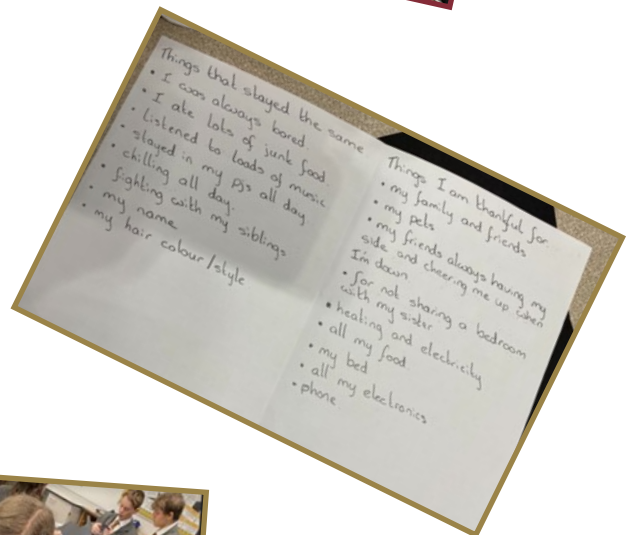 Things that stayed the same
• I was always bored
• I ate lots of junk food
• listened to loads of music
• stayed in my pjs all day
• chilling all day.
• fighting with my siblings
• my name
• my hair colour/style
Things I am thankful for
• my family and friends
• my pets
• my friends always having my
side and cheering me up when
I'm down
• for not sharing a bedroom
with my sister
• heating and electricity
• all my food
• my bed
• all my electronics
• phone